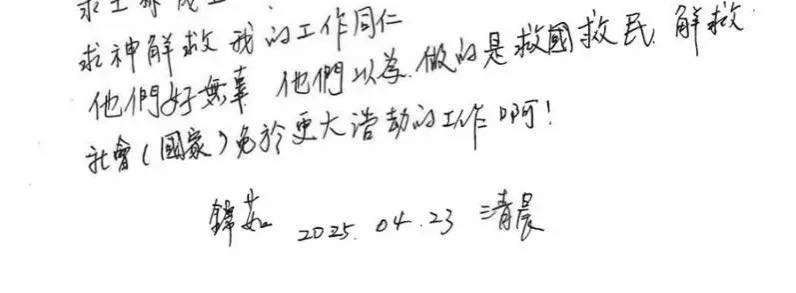 求神解救我的工作同仁
他們好無辜 他們以為做的是救國救民、解救
社會(國家)免於更大浩劫的工作啊!
錦茹 2025.04.23 清晨